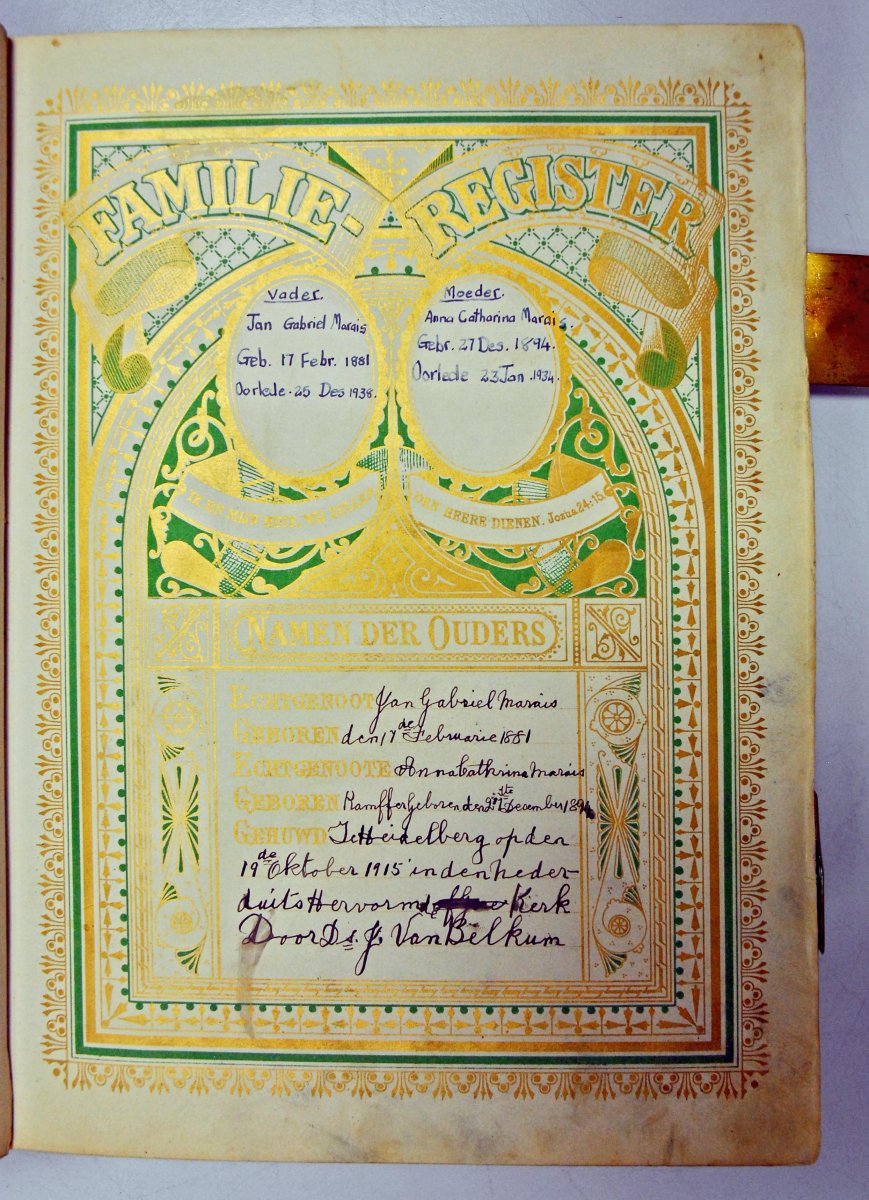 FAMILIE-REGISTER
Vader.
Jan Gabriel Marais
Geb. 17 Febr. 1881
Oorlede. 25 Des 1938.
Moeder.
Anna Catharina Marais.
Gebr. 27 Des. 1894.
Oorlede 23 Jan. 1934.
IK EN MIJN HUIS, WIJ ZULLEN
DEN HEERE DIENEN. Jozua 24:15.
NAMEN DER OUDERS
ECHTGENOOT Jan Gabriel Marais
GEBOREN den 17de Februarie 1881
ECHTGENOOTE Anna Cathrina Marais
GEBOREN Kampffer Geboren den December 1894
GEHUWD Te Heidelberg op den
19de Oktober 1915 in den Neder-
duits Hervormde Kerk
Door Ds. J. Van Belkum